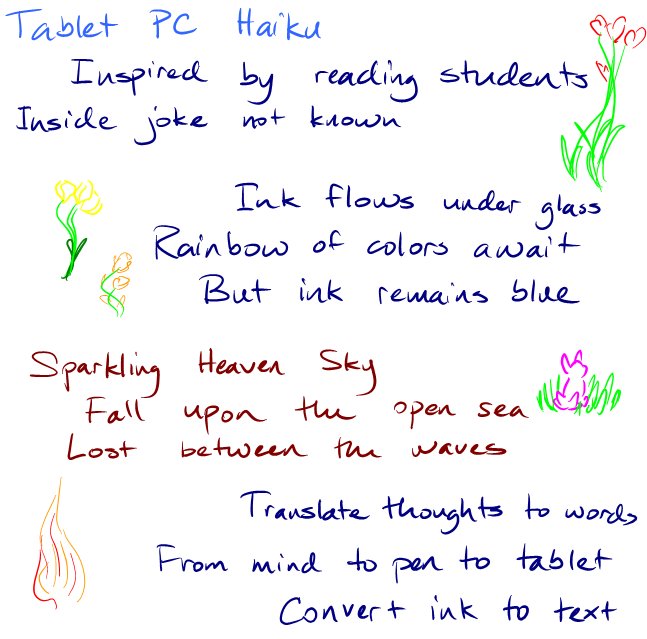 Tablet PC Haiku
Inspired by reading students
Inside joke not known
Ink flows under glass
Rainbow of colors await
But ink remains blue
Sparkling Heaven Sky
Fall upon the open sea
Lost between the waves
Translate thoughts to words
From mind to pen to tablet
Convert ink to text